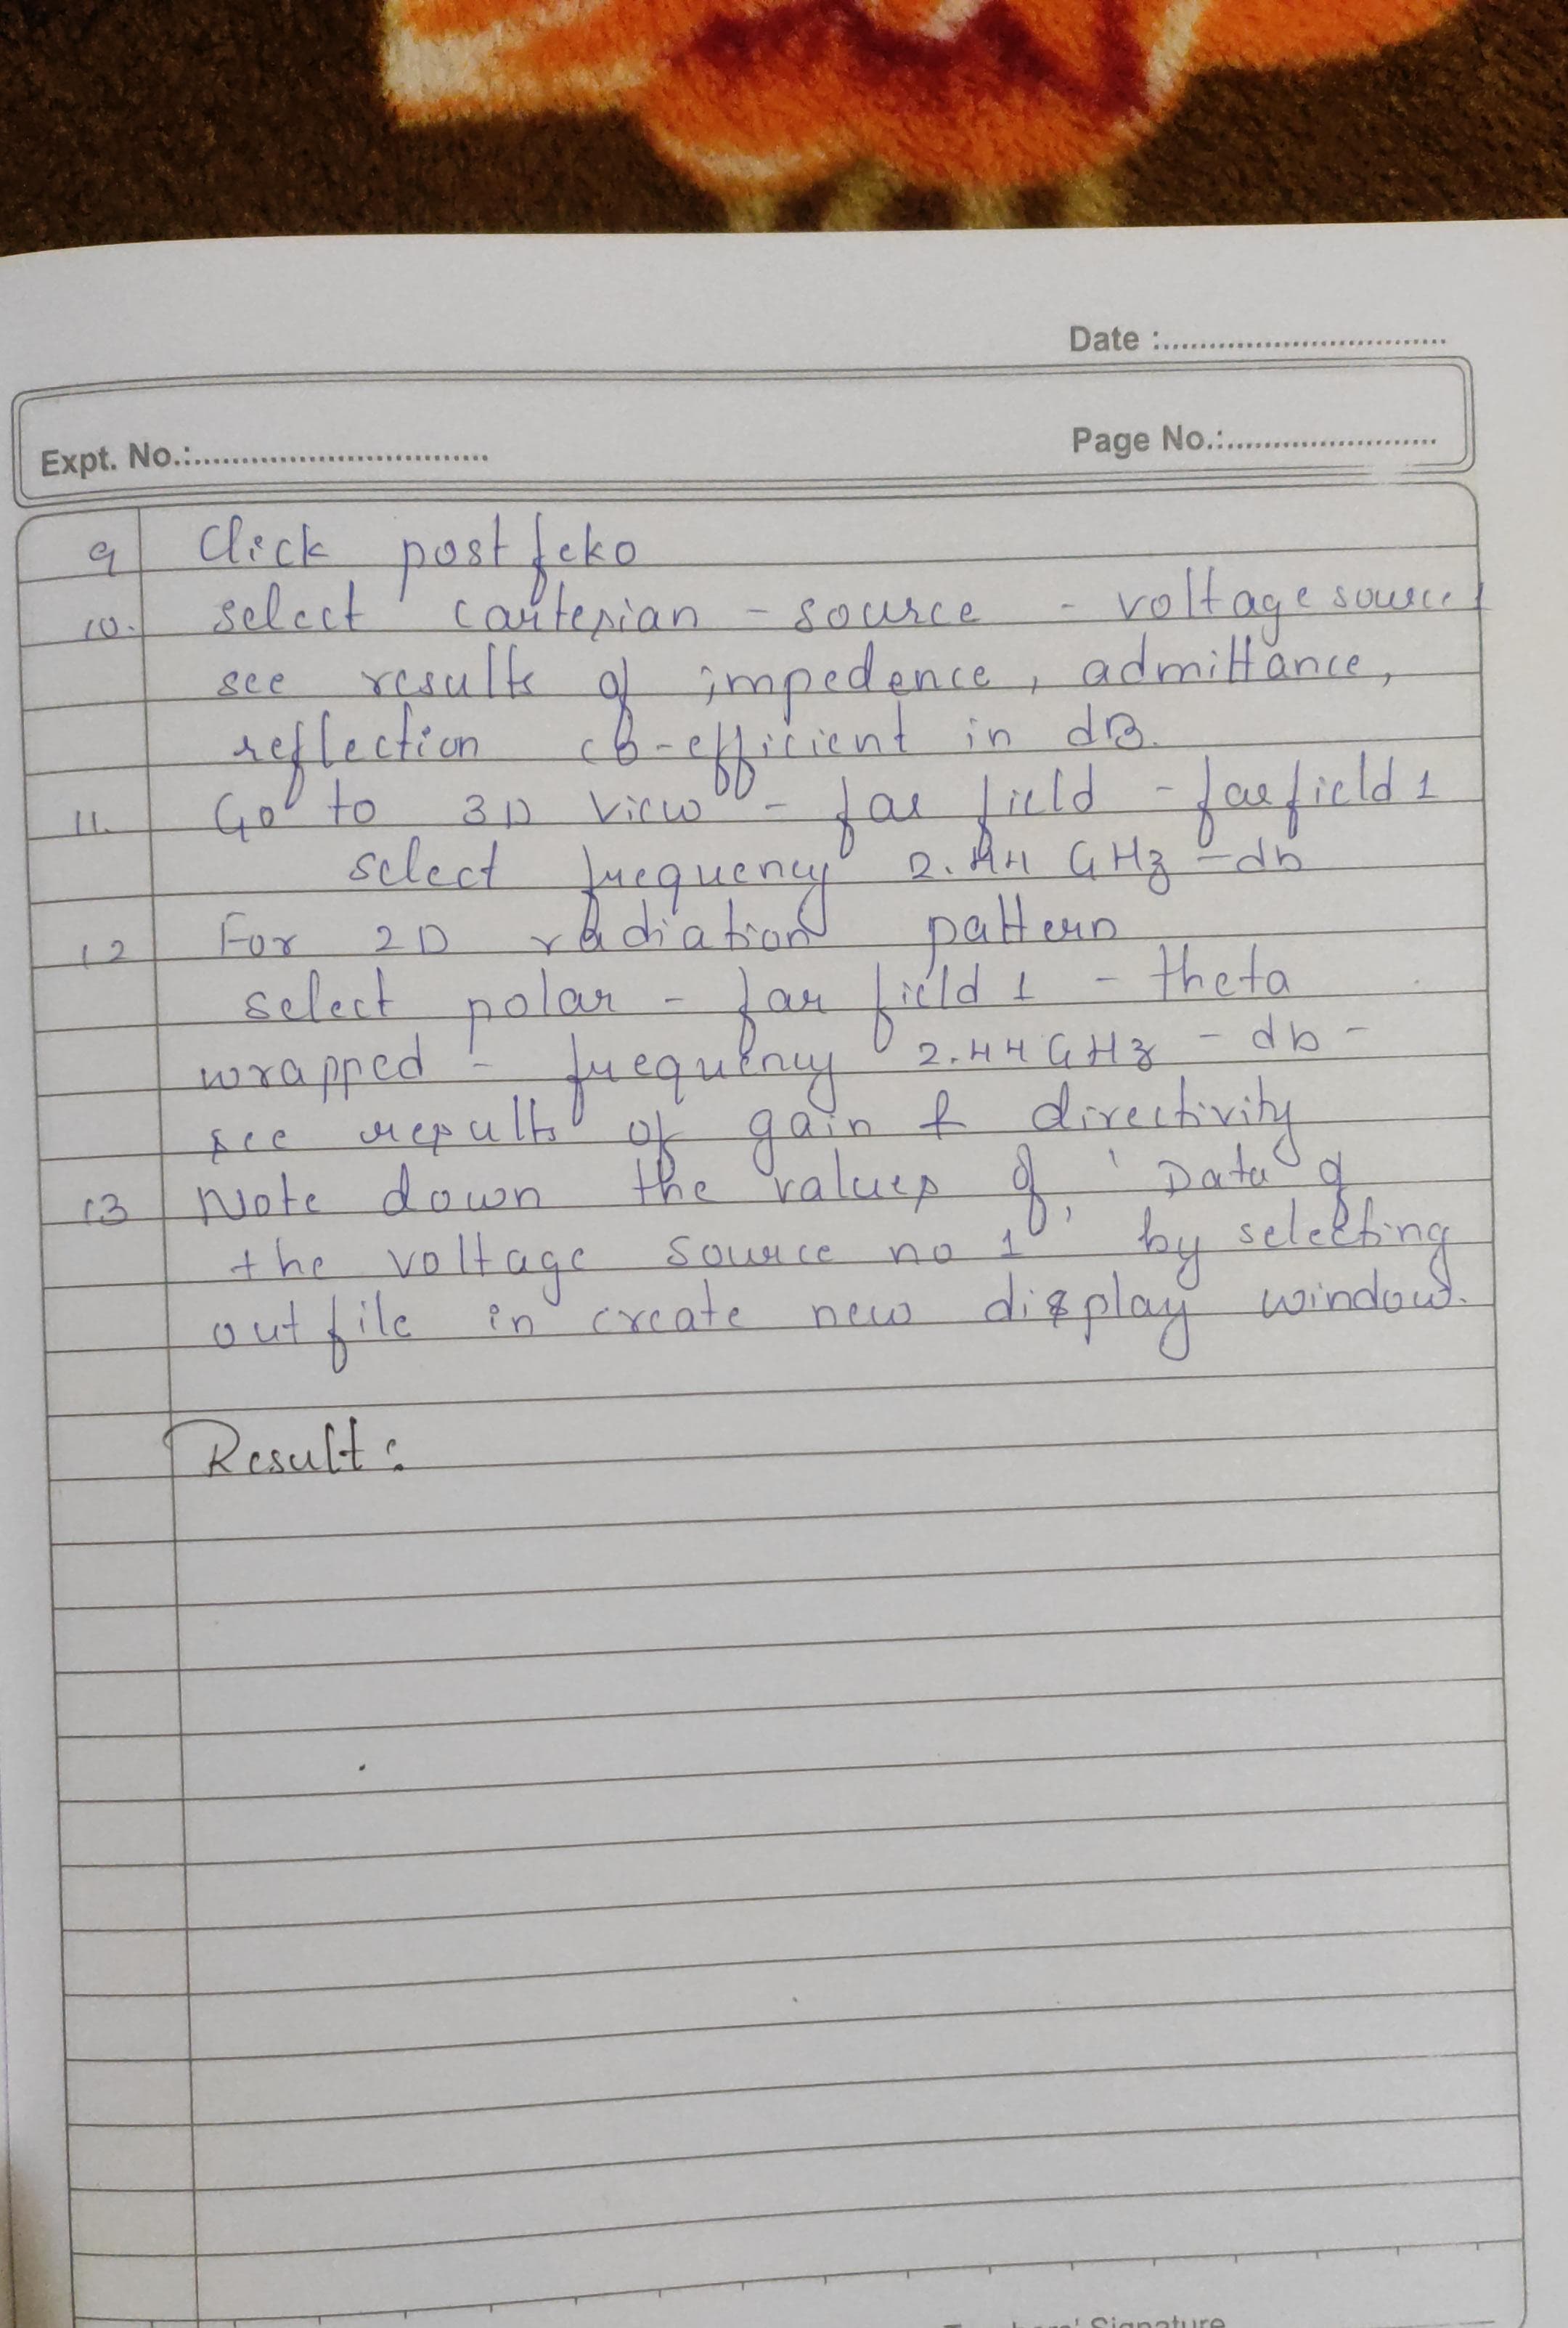 Date :................................
Expt. No.:................................ Page No.:........................
9 Click postfeko
10. select cartesian - source - voltage source1
see results of impedence, admittance,
reflection co-efficient in dB.
11. Go to 3D view - far field - farfield 1
select frequency 2.44 GHz - db
12 For 2D radiation pattern
select polar - far field 1 - theta
wrapped - frequency 2.44GHz - db -
see results of gain & directivity
13 Note down the values of 'Data of
the voltage source no 1' by selecting
out file in create new display window.
Result:
Signature